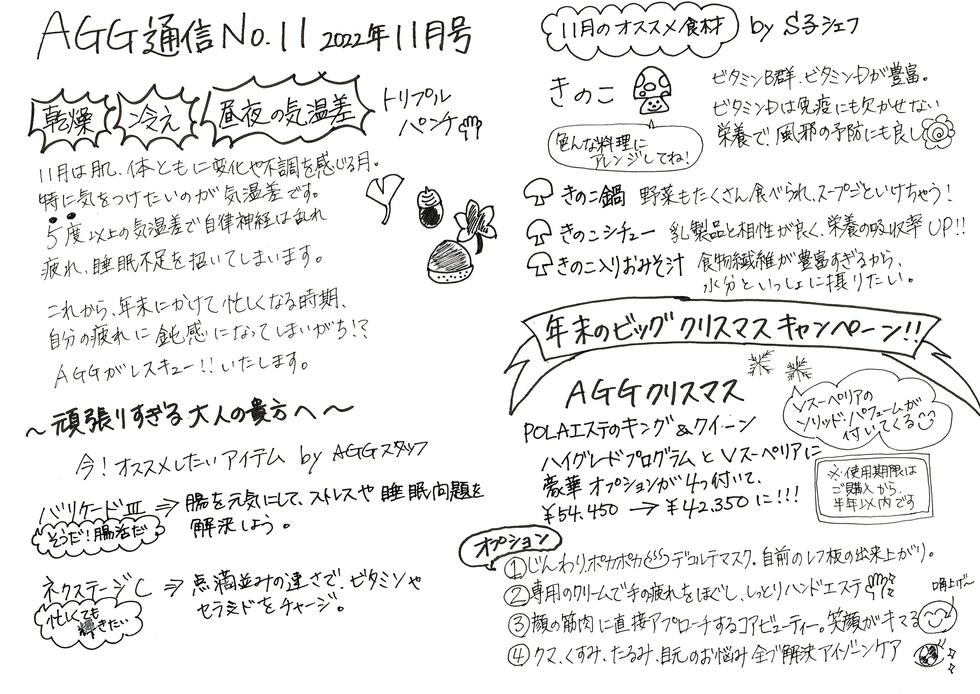 AGG通信 No.11 2022年11月号
乾燥 冷え 昼夜の気温差 トリプル
パンチ
11月は肌、体ともに変化や不調を感じる月。
特に気をつけたいのが気温差です。
5度以上の気温差で自律神経は乱れ
疲れ、睡眠不足を招いてしまいます。
これから、年末にかけて忙しくなる時期、
自分の疲れに鈍感になってしまいがち!?
AGGがレスキュー!!いたします。
〜頑張りすぎる大人の貴方へ〜
今!オススメしたいアイテム by AGGスタッフ
バリケードⅢ ⇒ 腸を元気にして、ストレスや睡眠問題を
解決しよう。
そうだ!腸活だ
ネクステージC ⇒ 点滴並みの速さで、ビタミンや
セラミドをチャージ。
忙しくても
輝きたい
11月のオススメ食材 by S子シェフ
きのこ
色んな料理に
アレンジしてね!
ビタミンB群、ビタミンDが豊富。
ビタミンDは免疫にも欠かせない
栄養で、風邪の予防にも良し
きのこ鍋 野菜もたくさん食べられ、スープごといけちゃう!
きのこシチュー 乳製品と相性が良く、栄養の吸収率UP!!
きのこ入りおみそ汁 食物繊維が豊富すぎるから、
水分といっしょに摂りたい。
年末のビッグクリスマスキャンペーン!!
AGGクリスマス
POLAエステのキング&クイーン
ハイグレードプログラムとVスーペリアに
豪華オプションが4つ付いて、
¥54.450 → ¥42.350に!!!
Vスーペリアの
ソリッド・パフュームが
付いてくる
※使用期限は
ご購入から、
半年以内です
オプション
①じんわりポカポカデコルテマスク。自前のレフ板の出来上がり。
②専用のクリームで手の疲れをほぐし、しっとりハンドエステ
③顔の筋肉に直接アプローチするコアビューティー。笑顔がキマる
口角上げ〜
④クマ、くすみ、たるみ、目元のお悩み全ブ解決アイゾーンケア